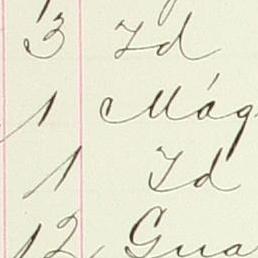 3 Id
1 Mág
1 Id
12 Gua